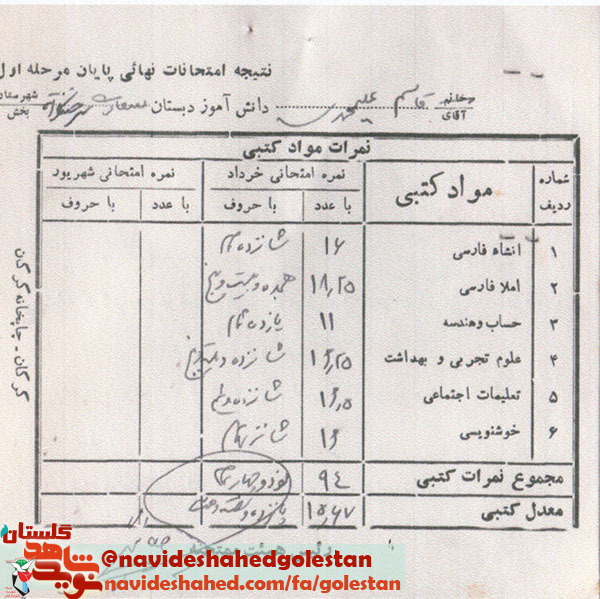 نتیجه امتحانات نهائی پایان مرحله اول
خانم
آقای
قاسم علیمحمدی
دانش آموز دبستان
شهرستان
بخش
نمرات مواد کتبی
شماره ردیف
مواد کتبی
نمره امتحانی خرداد
نمره امتحانی شهریور
با عدد با حروف با عدد با حروف
۱ انشاء فارسی ۱۶ شانزده تمام
۲ املا فارسی ۱۸٫۲۵ هجده و بیست و پنج
۳ حساب و هندسه ۱۱ یازده تمام
۴ علوم تجربی و بهداشت ۱۶٫۲۵ شانزده و بیست و پنج
۵ تعلیمات اجتماعی ۱۶٫۵ شانزده و نیم
۶ خوشنویسی ۱۶ شانزده تمام
مجموع نمرات کتبی ۹۴ نود و چهار تمام
معدل کتبی ۱۵٫۶۷
گرگان - چاپخانه گرگان
نوید شاهد گلستان
@navideshahedgolestan
navideshahed.com/fa/golestan